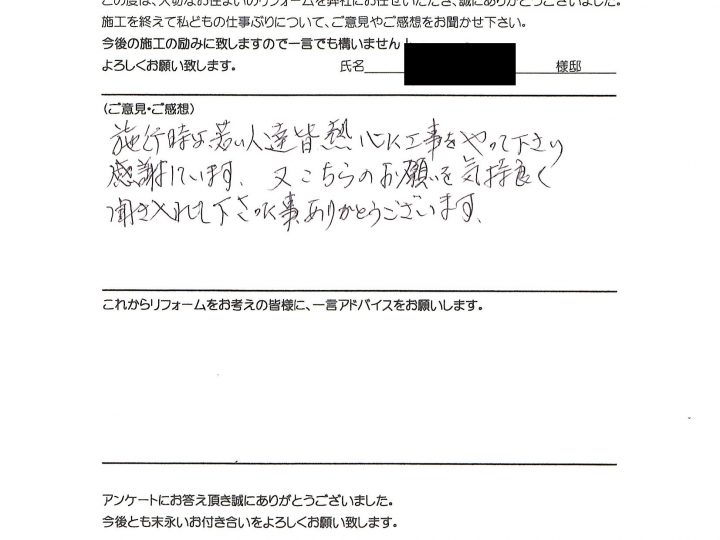 この度は、大切なお住まいのリフォームを弊社にお任せいただき、誠にありがとうございました。
施工を終えて私どもの仕事ぶりについて、ご意見やご感想をお聞かせ下さい。
今後の施工の励みに致しますので一言でも構いません！
よろしくお願い致します。 氏名 様邸
(ご意見・ご感想)
施行時は、若い人達皆熱心に工事をやって下さり
感謝しています、又こちらのお願いを気持良く
聞き入れて下さった事、ありがとうございます、
これからリフォームをお考えの皆様に、一言アドバイスをお願いします。
アンケートにお答え頂き誠にありがとうございました。
今後とも末永いお付き合いをよろしくお願い致します。